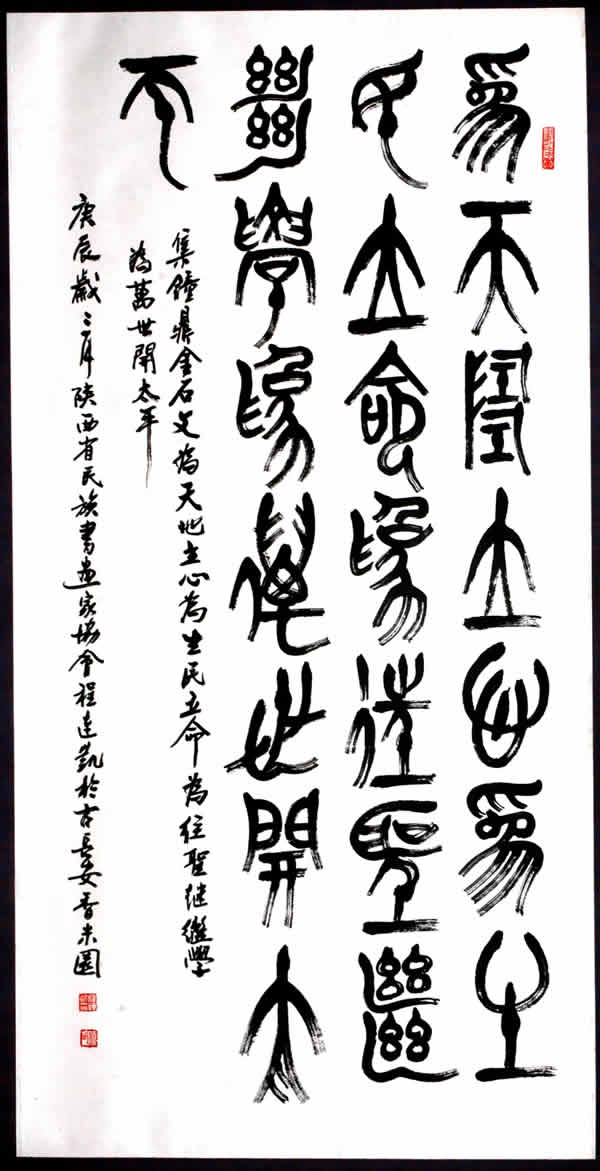 為天地立心為生
民立命為往聖繼
絕學為萬世開太
平
集鐘鼎金石文為天地立心為生民立命為往聖继繼學
為萬世開太平
庚辰歲二月陝西省民族書畫家協會程连凱於古長安香米園